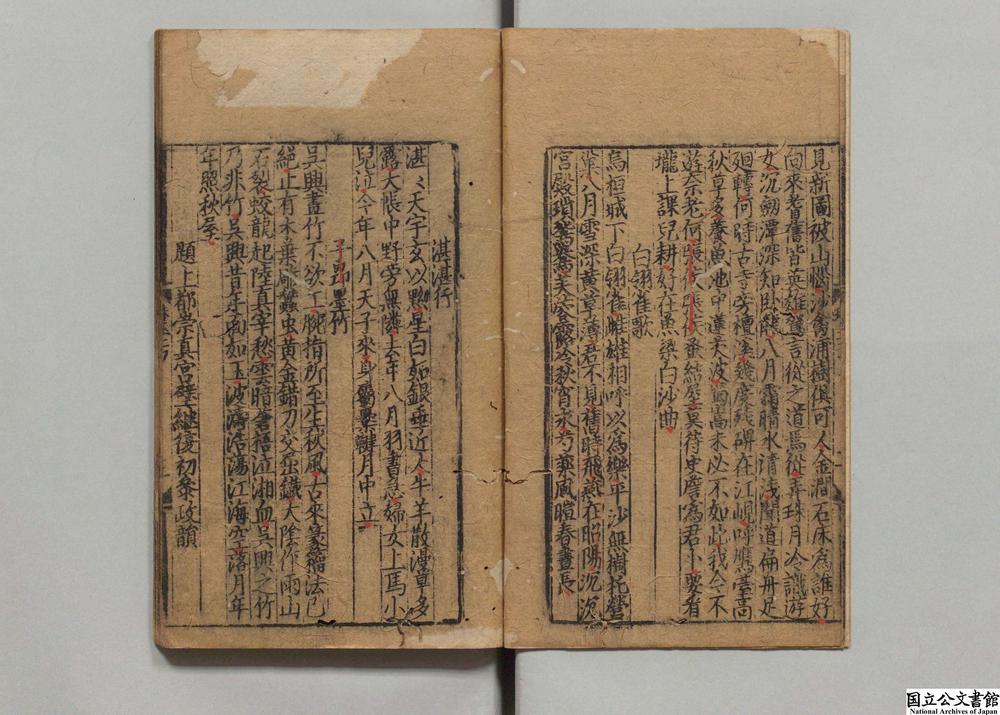 見新圖披山櫩沙禽浦樹俱可人金澗石床爲誰好
向來耆舊皆英雄寓言從之道焉從弄珠月冷識遊
女沉劔潭深知卧龍八月霜晴水清淺聞道扁舟足
廻轉何時古寺旁種幾度殘碑在江峴呼鷹臺高
秋草多養魚池中蓮芡波酒高未必不如此我今不
遊奈老何張結屋莫待史詹爲君一要看
壠上課兒耕好在魚梁白沙曲
白翎雀歌
烏桓城下白翎雀雄雌相呼以爲樂平沙無樹托營
巢八月雪深黄草薄君不見舊時飛燕在昭陽沉沉
宮殿瑣鴛鴦芙蓉露冷秋宵永芍藥風暄春晝長
湛湛行
湛々天宇玄以黝星白如銀垂近人牛羊散漫草多
露大帳中野旁無隣去年八月羽書急婦女上馬小
兒泣今年八月天子來身屬櫜鞬月中立
子昂墨竹
吳興畫竹不欲工腕指所至生秋風古來篆籀法已
絕止有木葉雕蠶虫黃金錯刀交屈鐵大陰作雨山
石裂蛟龍起陸真宰愁雲暗蒼梧泣湘血吳興之竹
乃非竹吳興昔年面如玉波濤浩蕩江海空落月年
年照秋屋
題上都崇真宮壁繼復初參政韻
国立公文書館
National Archives of Japan